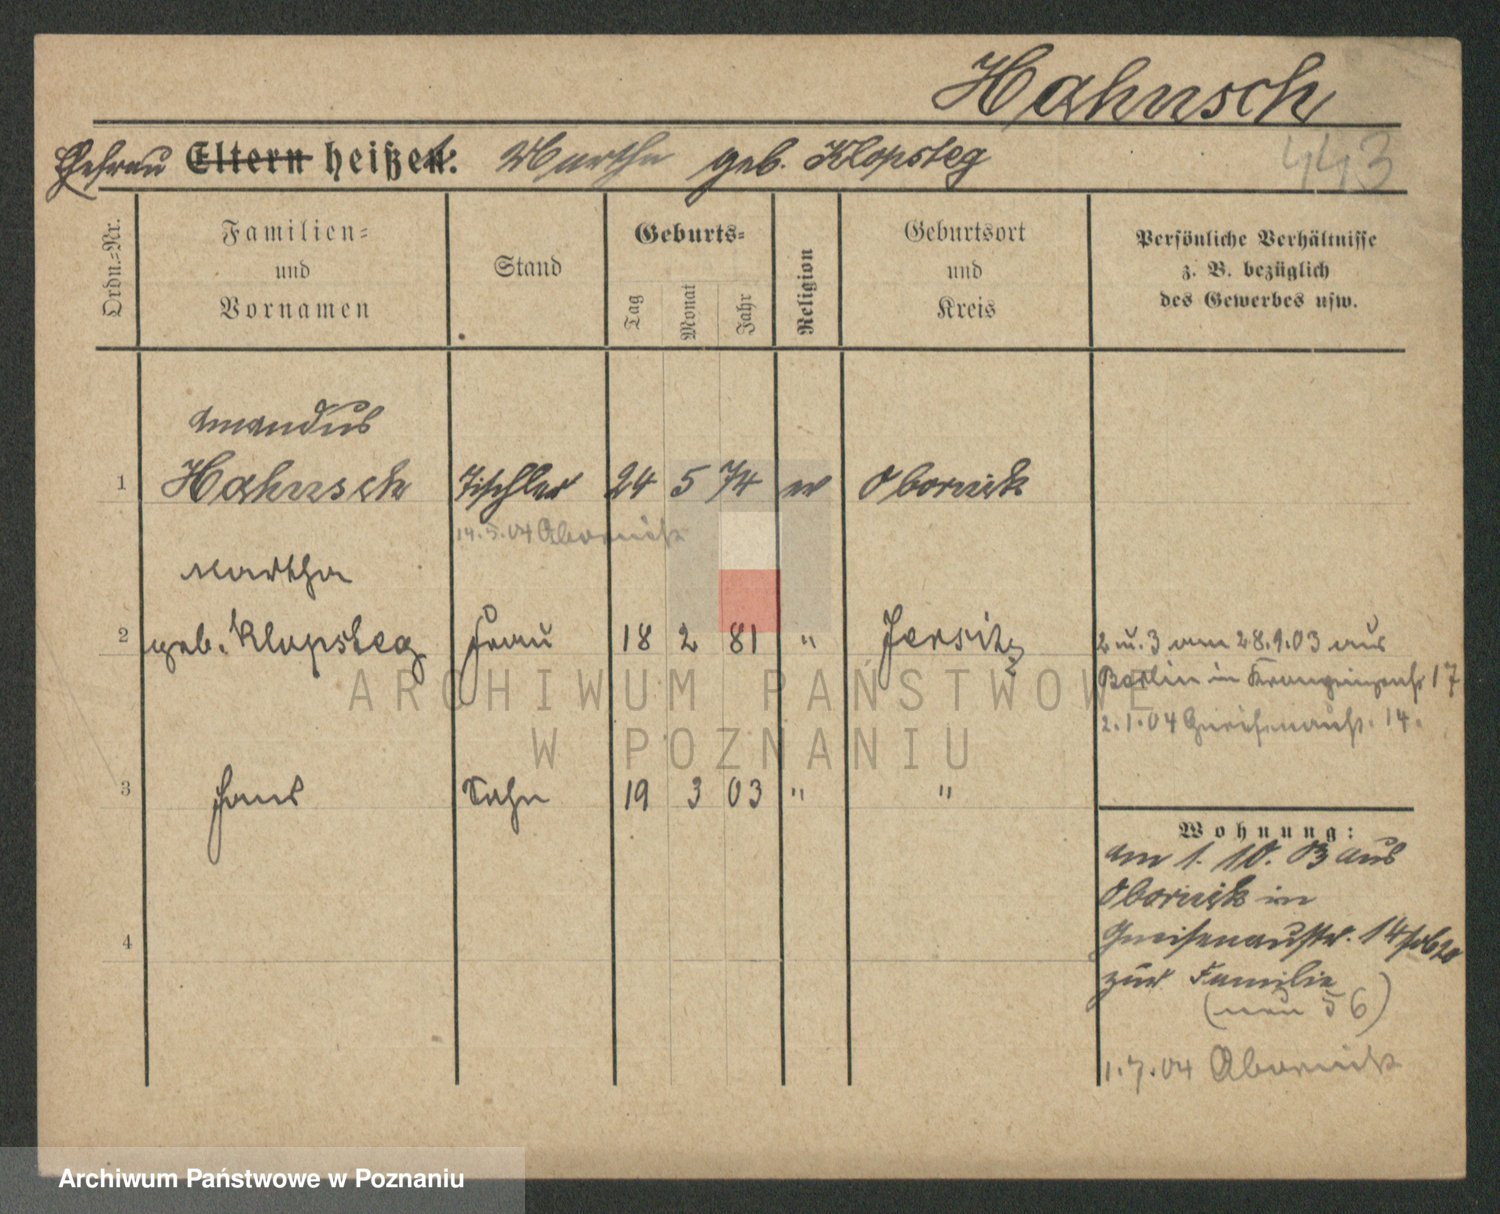 Hahnsch
Ehefrau Eltern heißen: Martha geb. Klopsteg
443
Ordn.-Nr.
Familien-
und
Vornamen
Stand
Geburts-
Tag
Monat
Jahr
Religion
Geburtsort
und
Kreis
Persönliche Verhältnisse
z. B. bezüglich
des Gewerbes usw.
Amandus
1 Hahnsch Tischler 24 5 74 ev Obornik
14.5.04 Obornik
Martha
2 geb. Klopsteg Frau 18 2 81 " Jersitz
2 u. 3 am 28.9.03 aus
Berlin in 17
2.1.04 Gneisenaustr. 14.
3 Hans Sohn 19 3 03 " "
4
Wohnung:
am 1. 10. 03 aus
Obornik in
Gneisenaustr. 14
zur Familie
(neu 56)
1.7.04 Obornik
ARCHIWUM PAŃSTWOWE
W POZNANIU
Archiwum Państwowe w Poznaniu